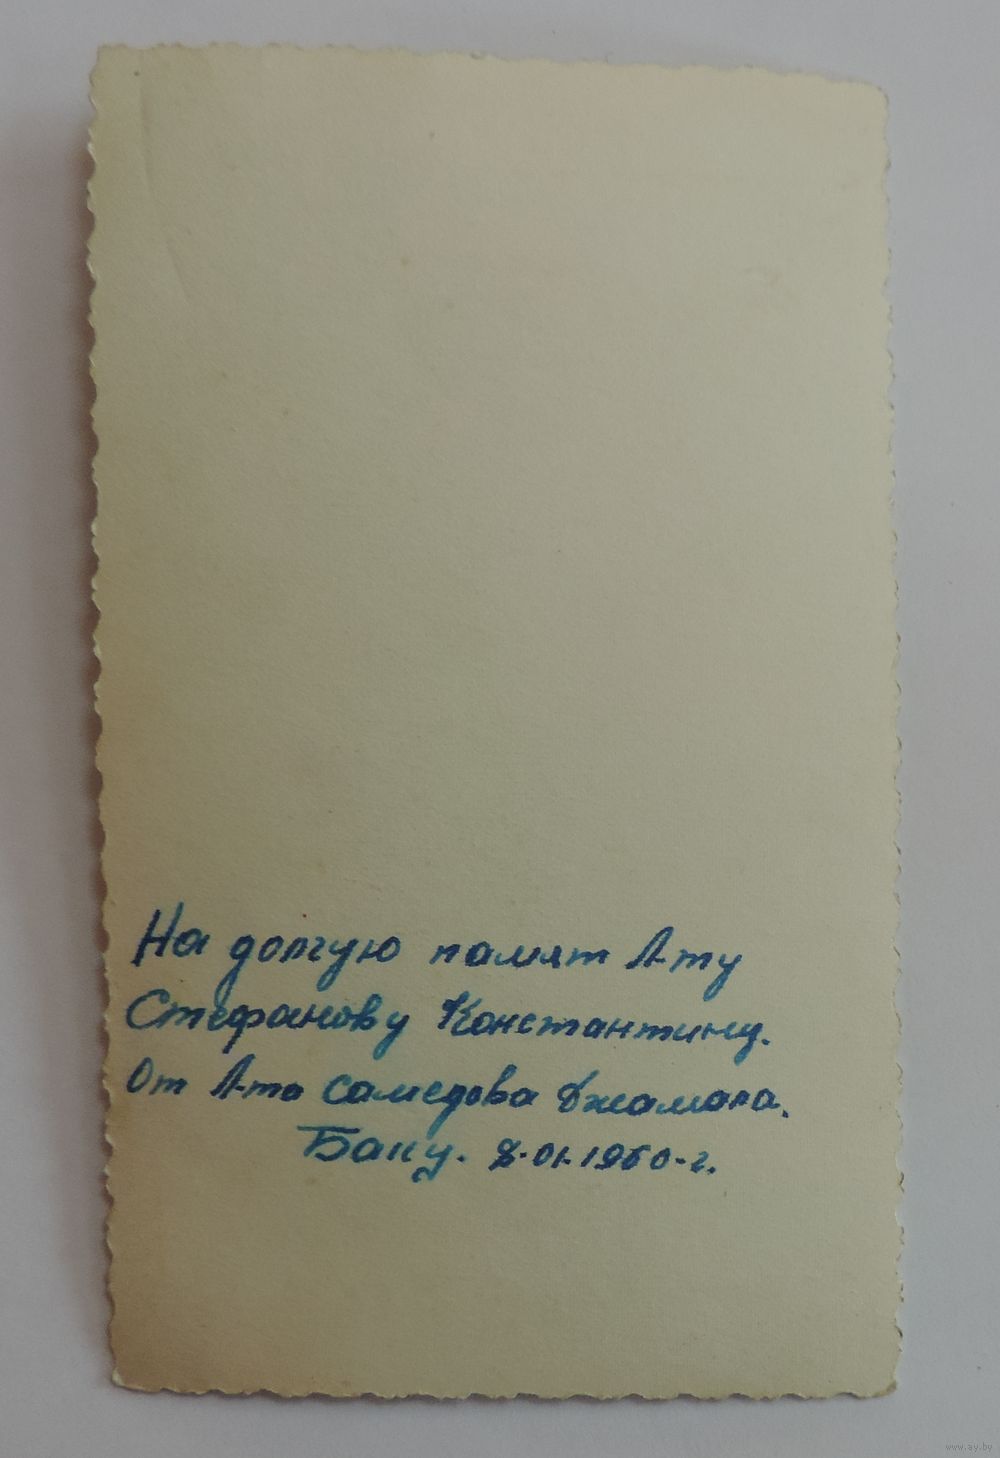 На долгую памят Л-ту
Стефанову Константину.
От Л-та Самедова Джамала.
Баку. 8.01.1960-г.
www.ay.by